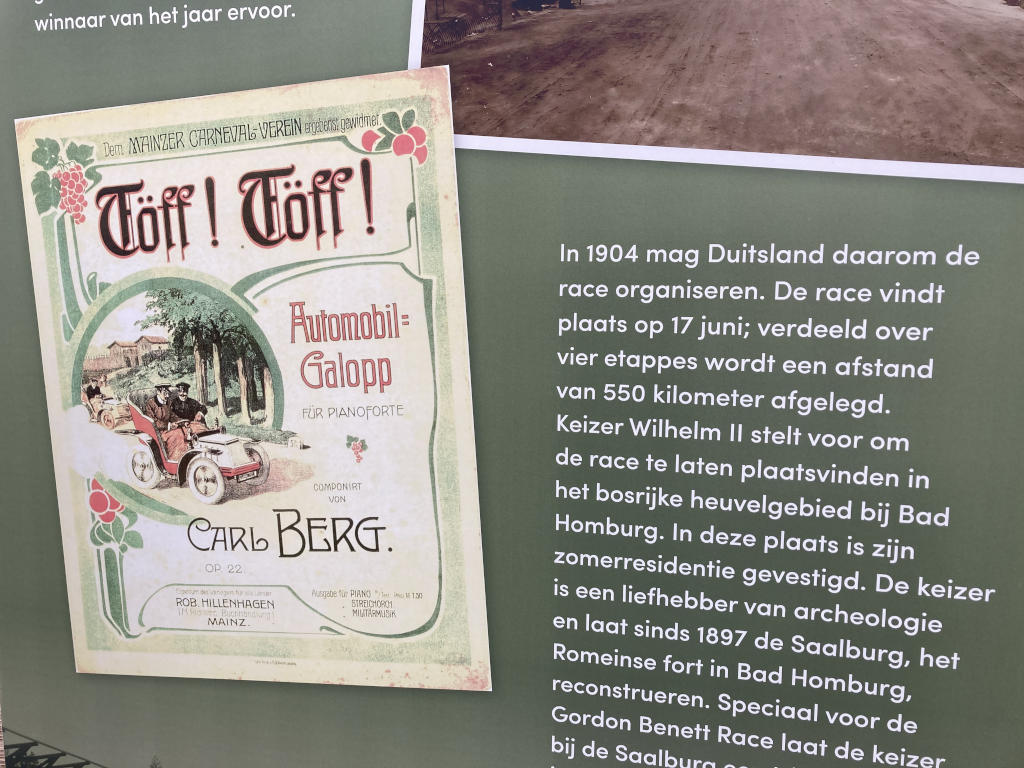 winnaar van het jaar ervoor.
Dem MAINZER CARNEVAL-VEREIN ergebenst gewidmet.
Töff! Töff!
Automobil=
Galopp
FÜR PIANOFORTE
COMPONIRT
VON
CARL BERG.
OP. 22.
Eigentum des Verlegers für alle Länder
ROB. HILLENHAGEN
MAINZ.
Ausgabe für PIANO
STREICHORCH
MILITÄRMUSIK
In 1904 mag Duitsland daarom de
race organiseren. De race vindt
plaats op 17 juni; verdeeld over
vier etappes wordt een afstand
van 550 kilometer afgelegd.
Keizer Wilhelm II stelt voor om
de race te laten plaatsvinden in
het bosrijke heuvelgebied bij Bad
Homburg. In deze plaats is zijn
zomerresidentie gevestigd. De keizer
is een liefhebber van archeologie
en laat sinds 1897 de Saalburg, het
Romeinse fort in Bad Homburg,
reconstrueren. Speciaal voor de
Gordon Benett Race laat de keizer
bij de Saalburg